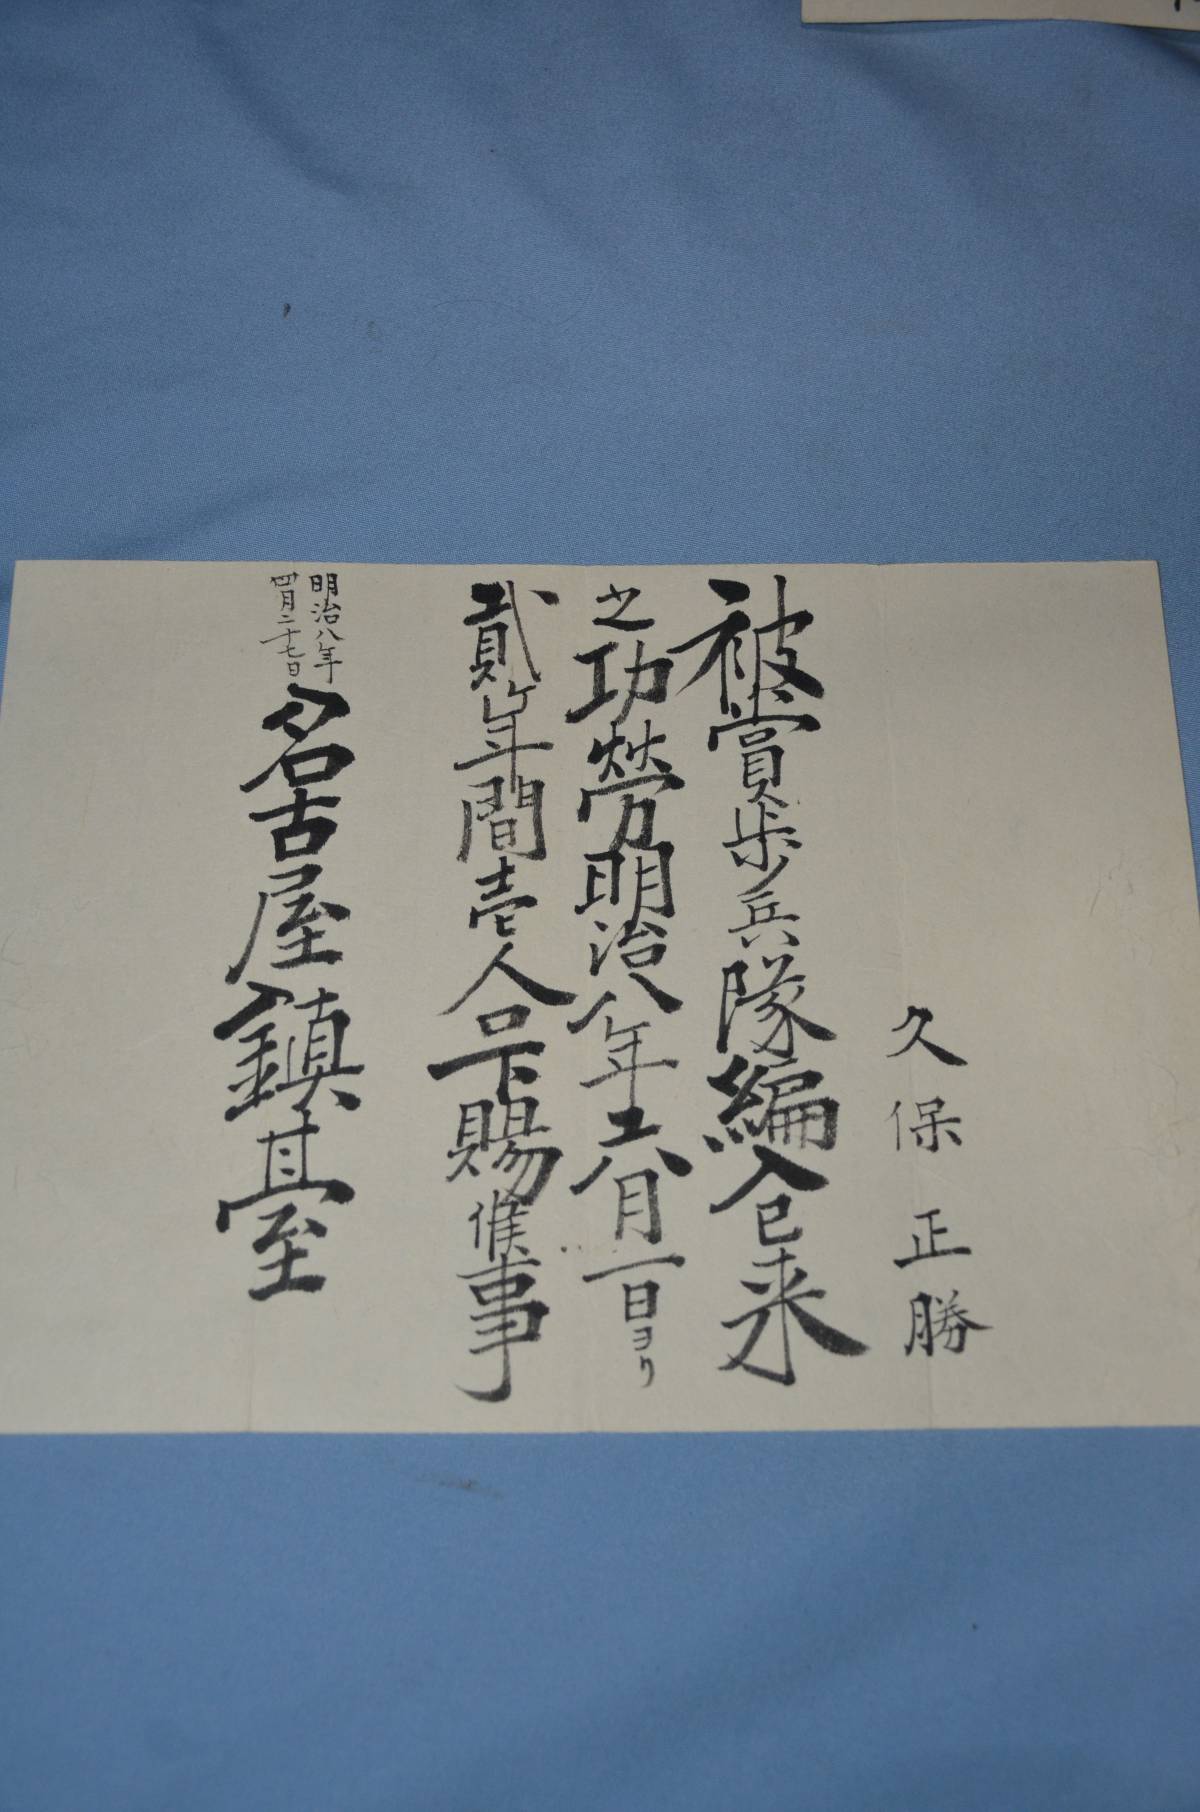 久保正勝
被賞歩兵隊編入已来
之功勞明治八年六月一日ヨリ
貳年間壱人口下賜候事
明治八年
四月二十七日
名古屋鎮臺